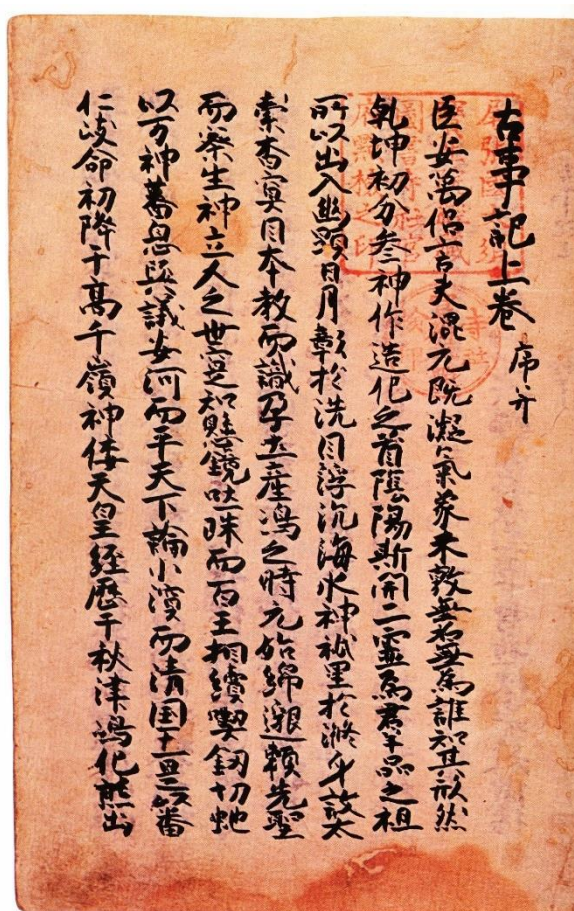 古事記上巻 序并
臣安萬侶言夫混元既凝氣象未敦無名無為誰知其形然
乾坤初分叅神作造化之首陰陽斯開二霊為羣品之祖
所以出入幽顕日月彰於洗目浮沉海水神祇呈於滌身故太
素杳冥因本教而識孕土産嶋之時元始綿邈頼先聖
而察生神立人之世寔知懸鏡吐珠而百王相續喫釼切虵
以万神蕃息與議安河而平天下論小濱而清国土是以番
仁岐命初降于高千嶺神倭天皇經歴于秋津嶋化熊出